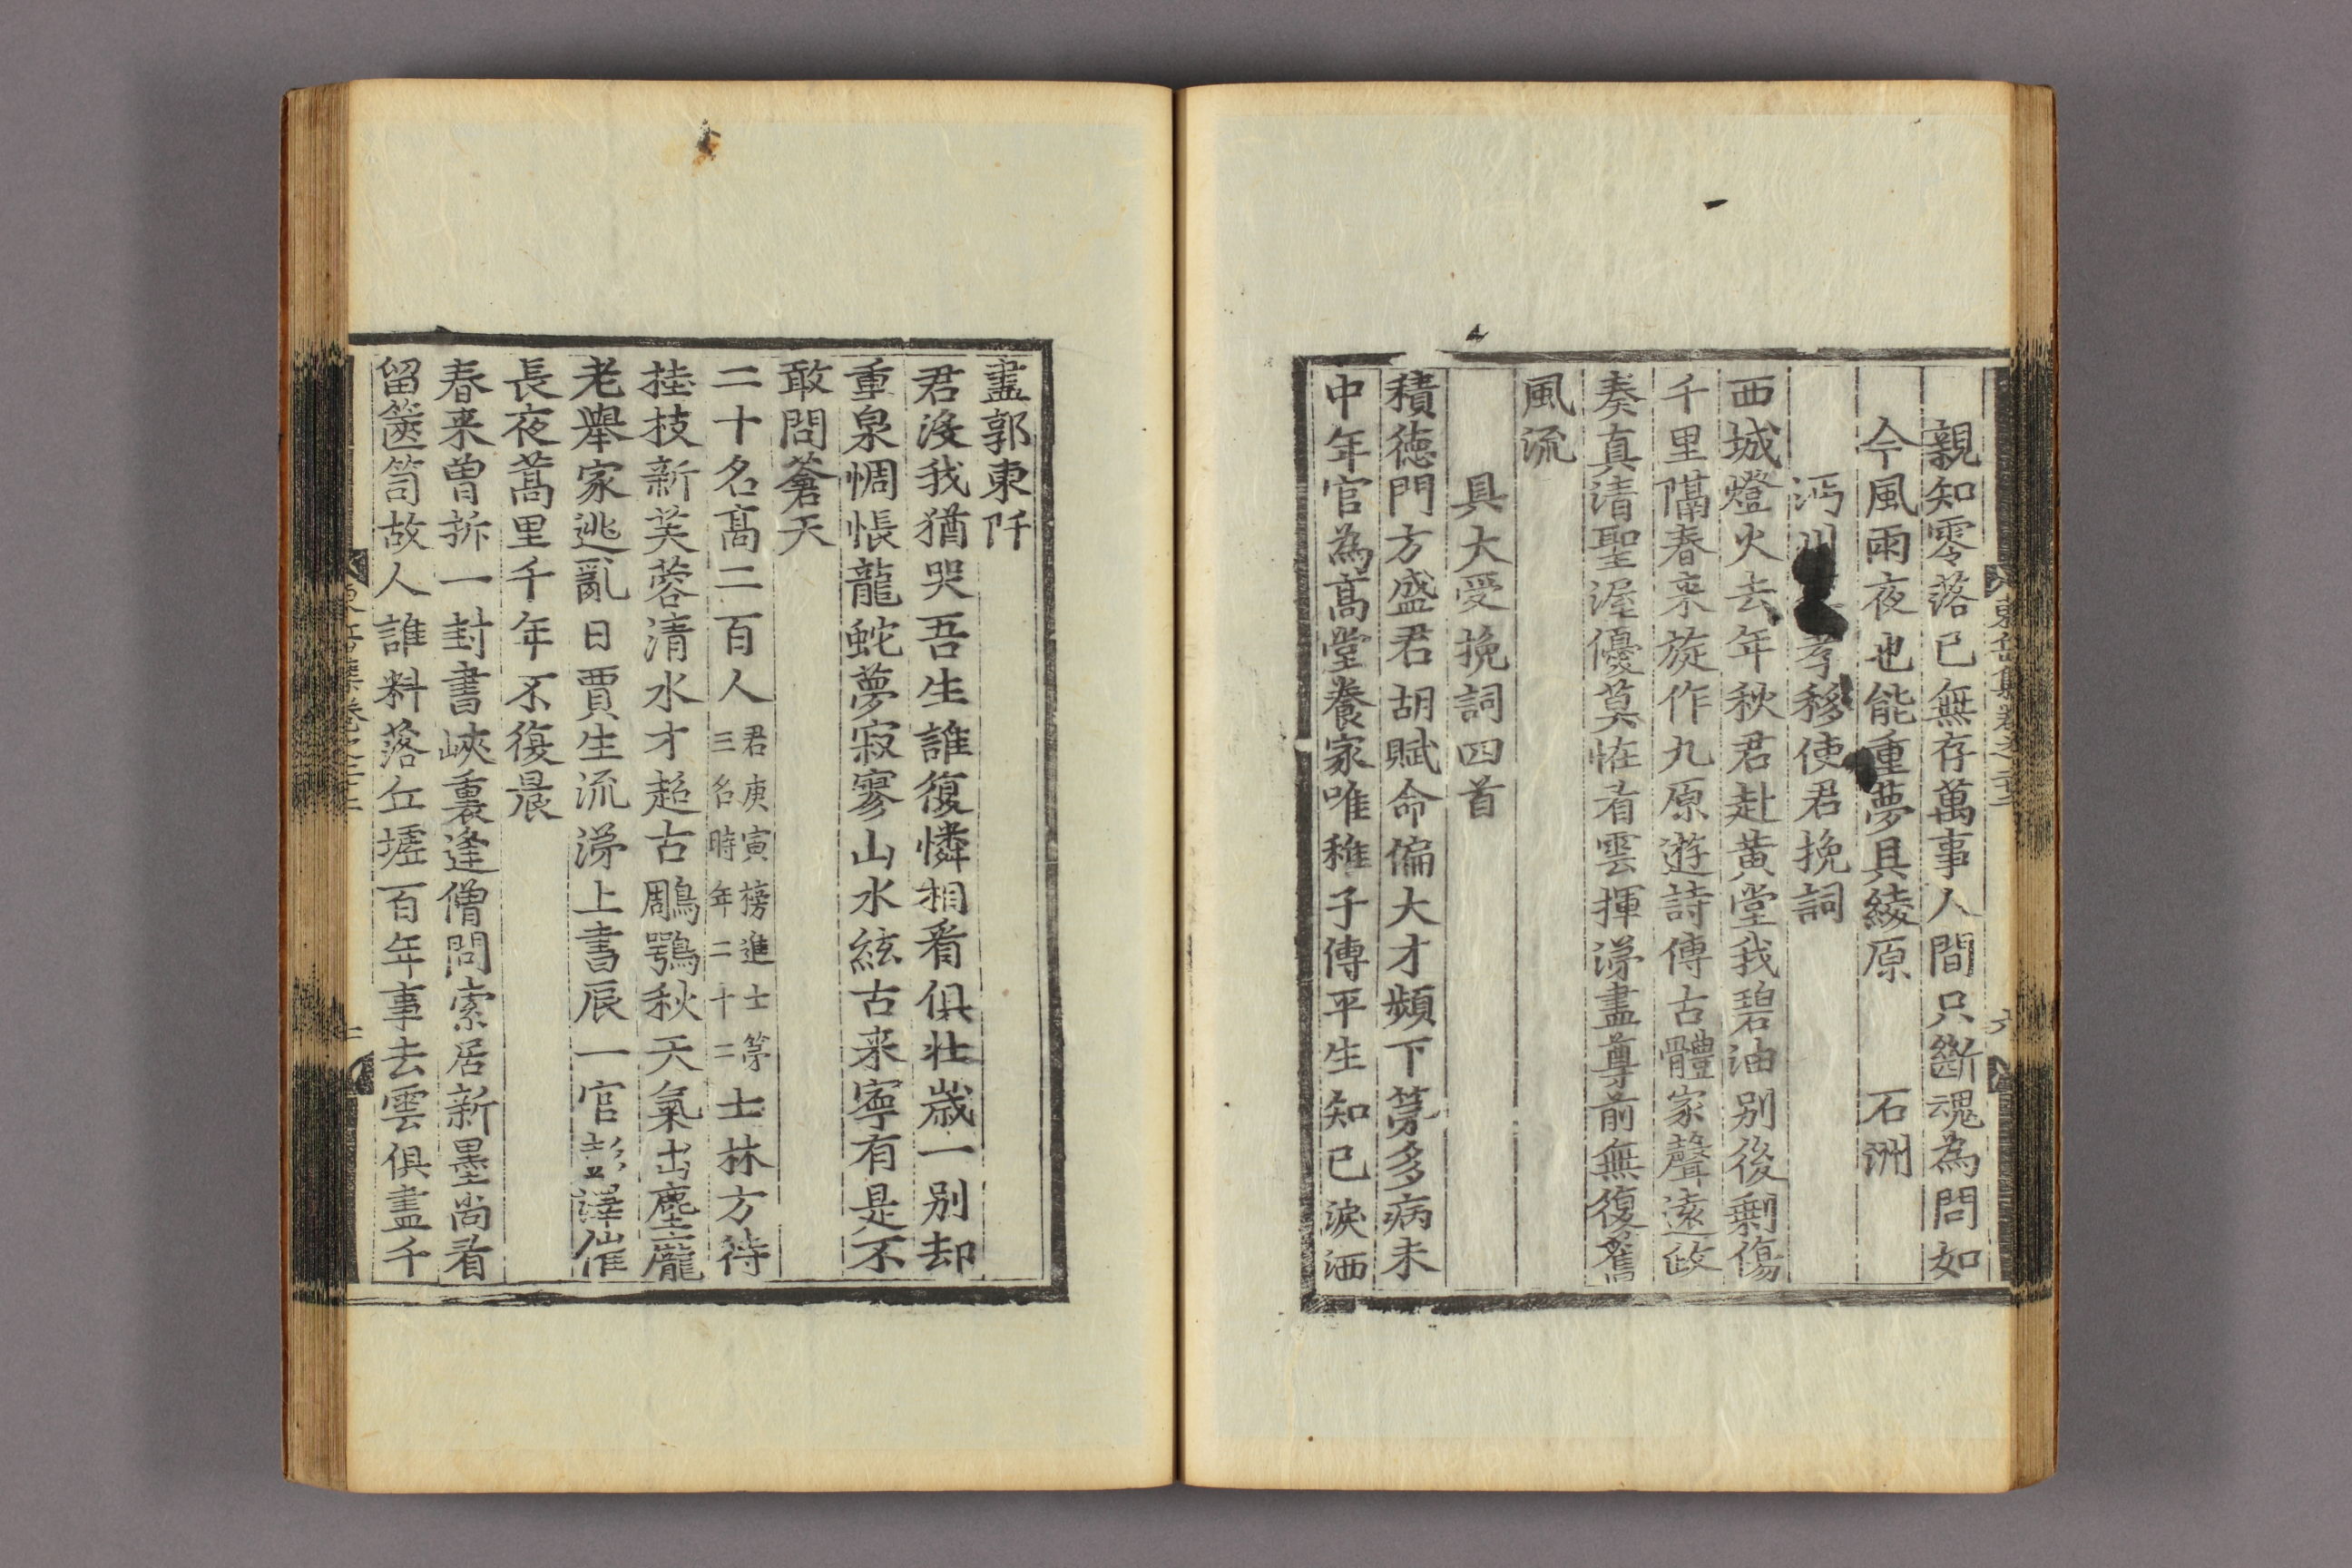 親知零落已無存萬事人間只斷魂為問如
今風雨夜也能重夢具綾原 石洲
沔川 李移使君挽詞
西城燈火去年秋君赴黃堂我碧油别後剩傷
千里隔春來旋作九原遊詩傳古體家聲遠政
奏真清聖渥優莫怪看雲揮涕盡尊前無復舊
風流
具大受挽詞四首
積德門方盛君胡賦命偏大才頻下第多病未
中年官為髙堂養家唯稚子傳平生知已淚洒
盡郭東阡
君沒我猶哭吾生誰復憐相看俱壯歲一别却
重泉惆悵龍蛇夢寂寥山水絃古来寧有是不
敢問蒼天
二十名髙二百人君庚寅榜進士第三名時年二十二士林方待
挂技新芙蓉清水才超古鵰鶚秋天氣出塵龐
老舉家逃亂日賈生流涕上書辰一官彭澤催
長夜蒿里千年不復晨
春来曾拆一封書峽裏逢僧問索居新墨尚看
留篋笥故人誰料落丘墟百年事去雲俱盡千